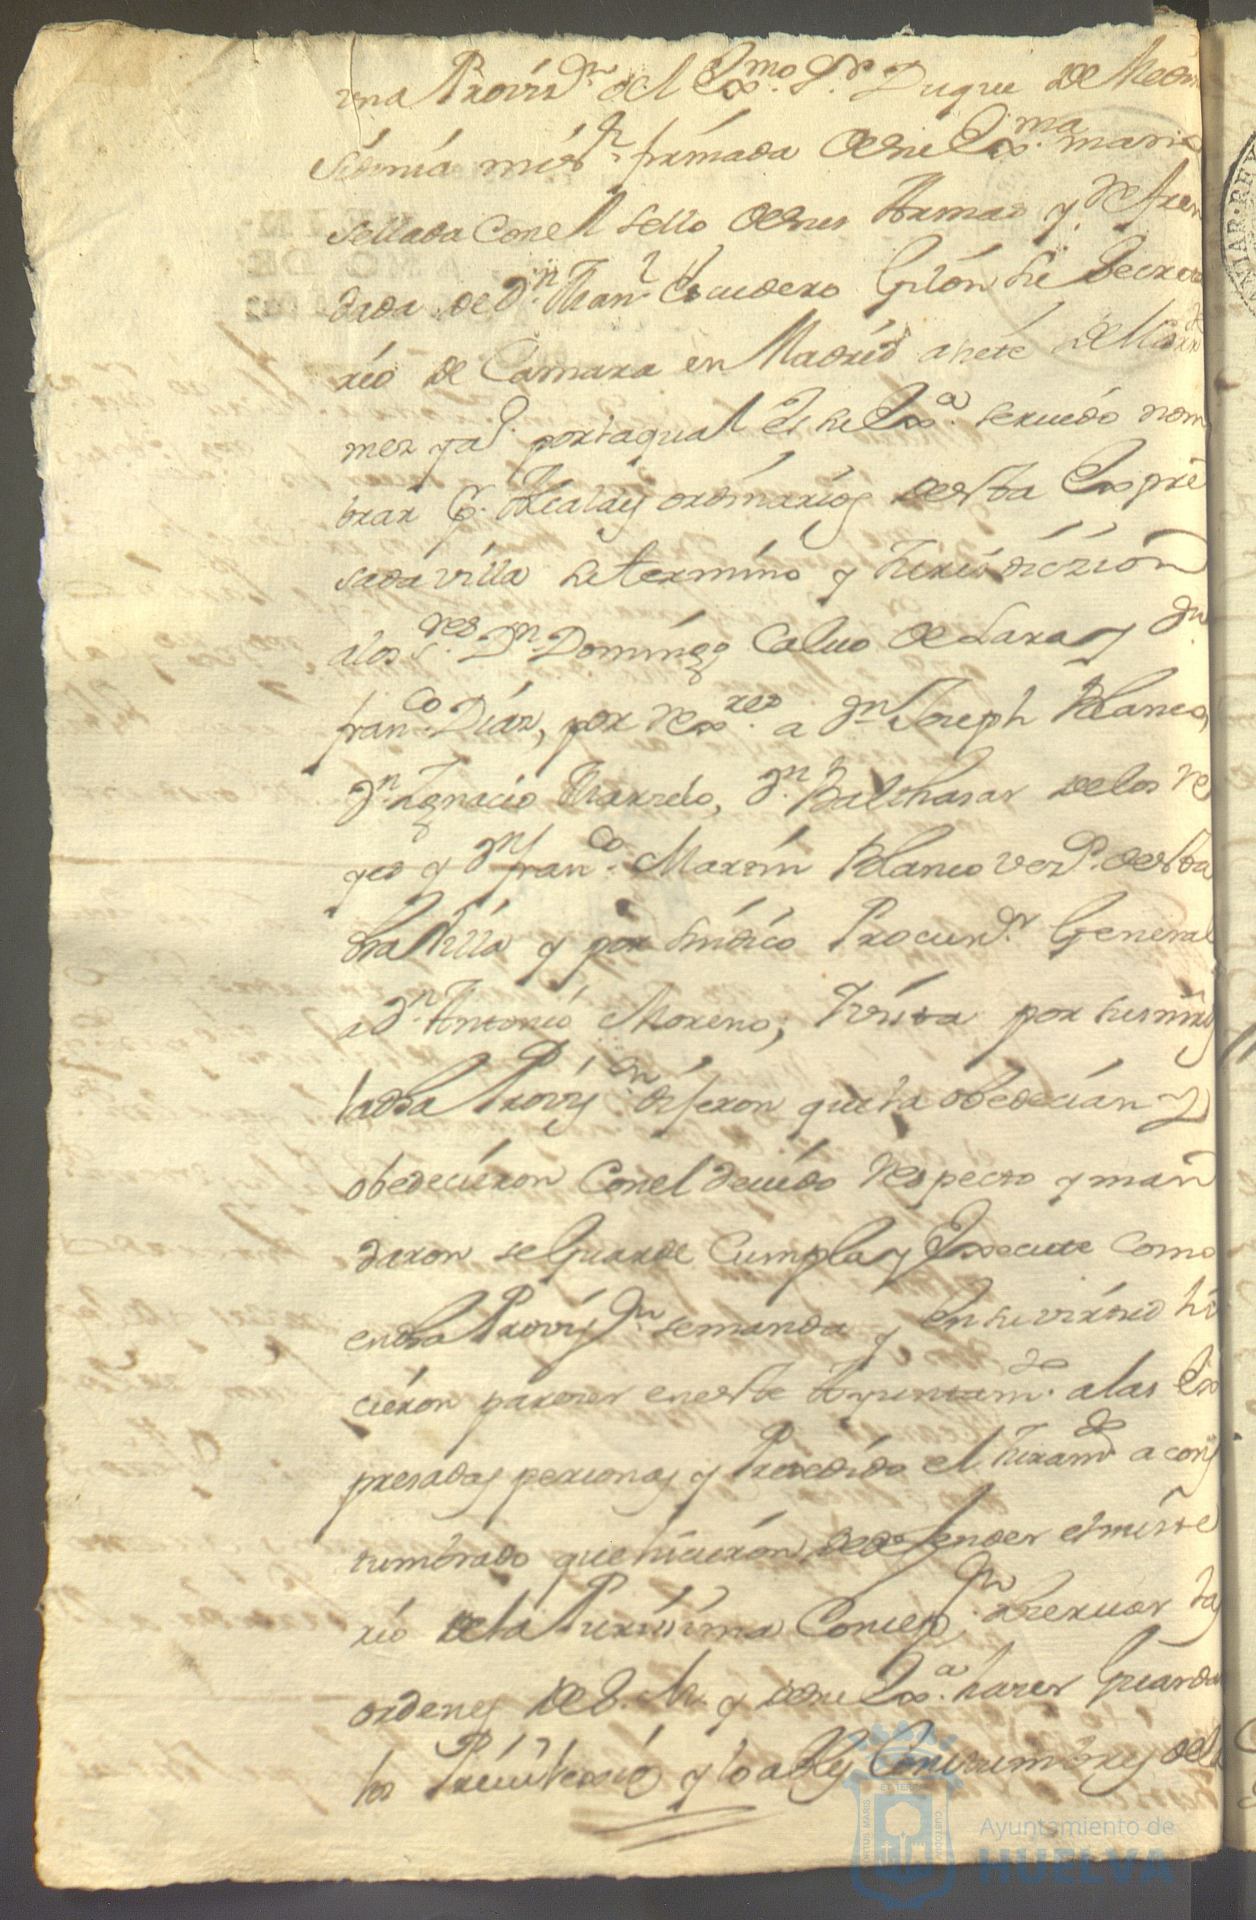 una Provis.on del Ex.mo S.r Duque de Medin
Sidonia mi s.r firmada de su Ex.ma mano
sellada con el sello de sus Armas y Refren
dada de D.n Fran.co Escudero Gilón su Secreta
rio de Camara en Madrid a siete de
por la qual es su Ex.a servido nom
brar p.r Alcaldes ordinarios de esta Expre
sada villa su termino y Jurisdiczion
a los S.res D.n Domingo Calvo de Lara y D.n
fran.co Diaz, por Rex.res a D.n Joseph Blanco,
D.n Ignacio Garrido, D.n Balthasar de los Re
yes y D.n fran.co Martin Blanco vez.s de esta
dha Villa y por Sindico Procur.dor General
a D.n Antonio Moreno; Y vista por sus mrds
la dha Provis.on dijeron que la obedecian y
obedecieron con el devido respecto y man
daron se Guarde Cumpla y Execute como
en dha Provis.on se manda y en su virtud hi
cieron parezer en este Ayuntam.to a las Ex
presadas personas y Precedido el Juram.to acos
tumbrado que hicieron de defender el miste
rio de la Purissima Concep.on observar las
ordenes de S. M. y de su Ex.a hazer Guardar
los Privilexios y loables Constumbres de
Ayuntamiento de
HUELVA